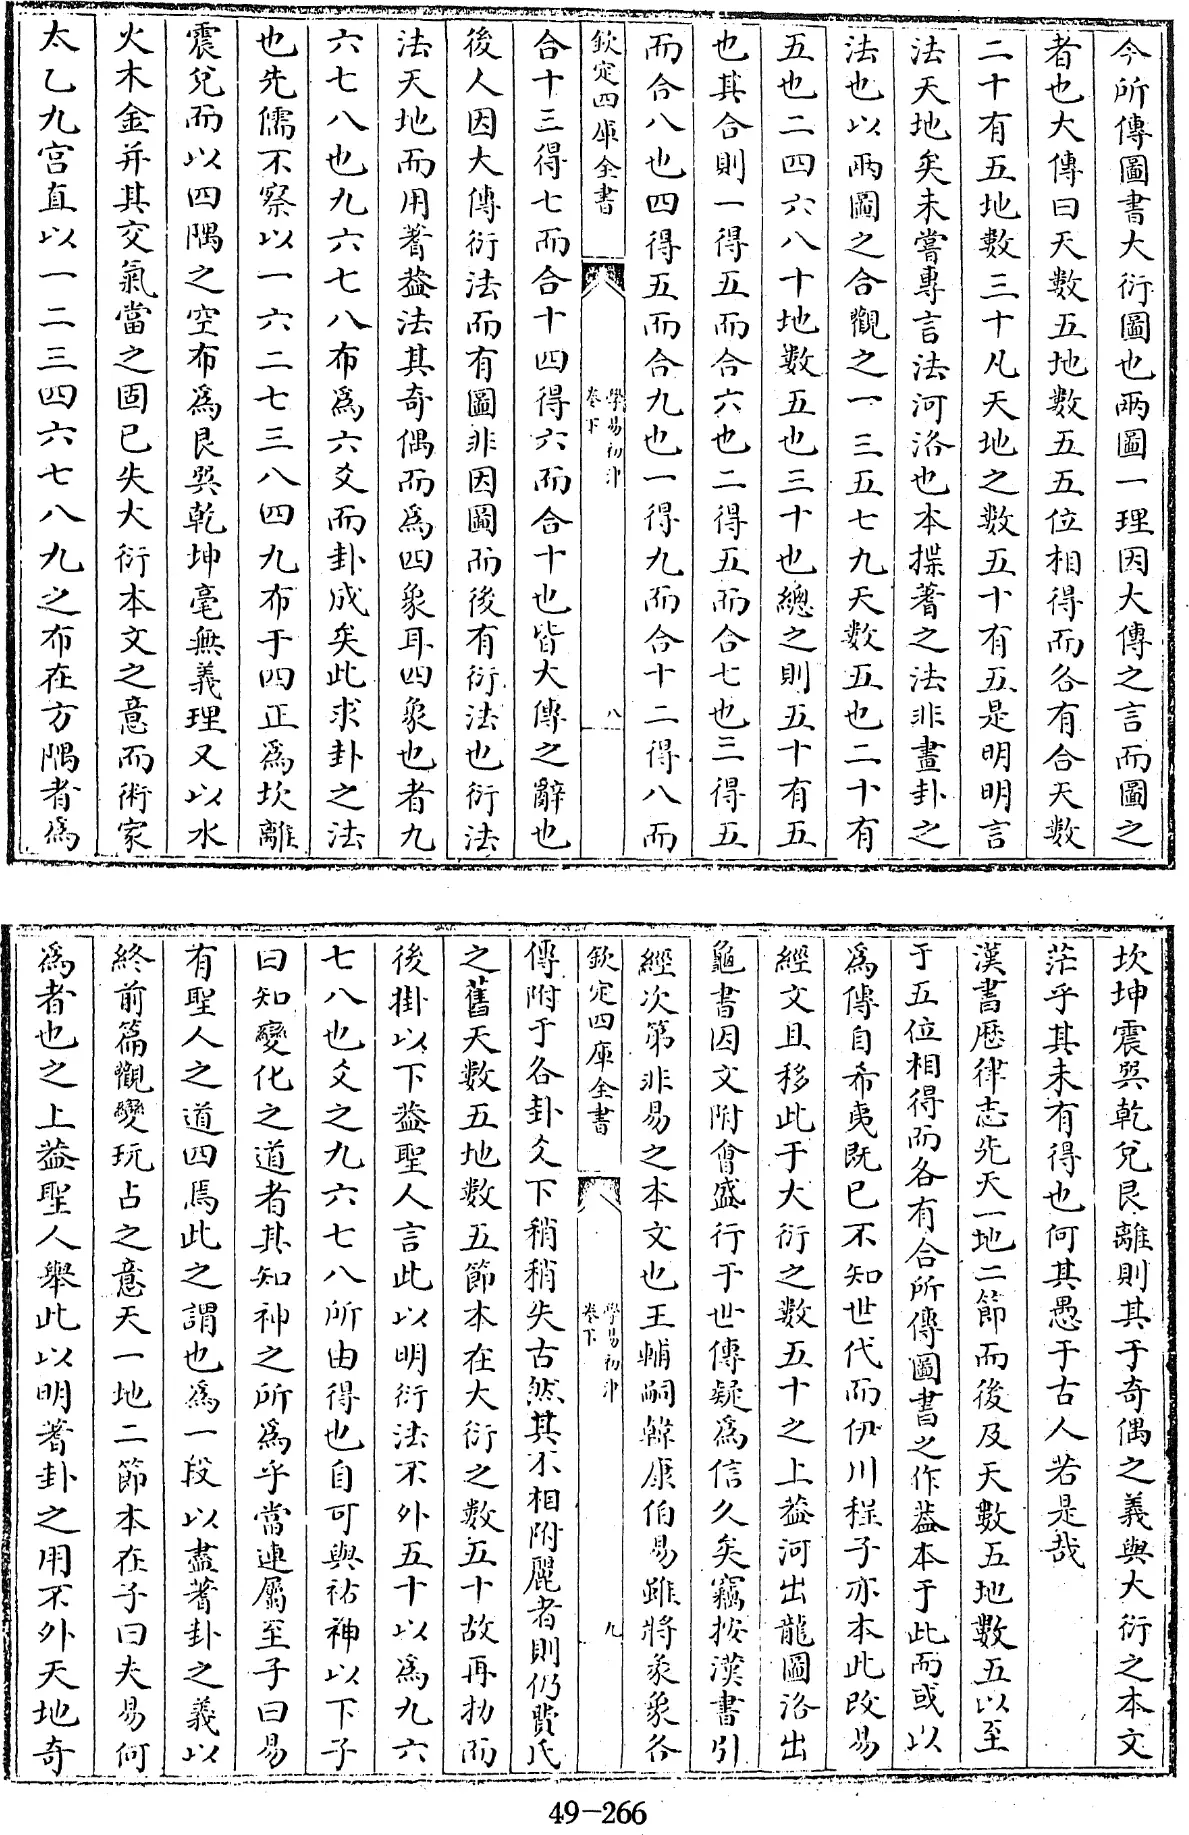 今所傳圖書大衍圖也兩圖一理因大傳之言而圖之
者也大傳曰天數五地數五五位相得而各有合天數
二十有五地數三十凡天地之數五十有五是明明言
法天地矣未嘗專言法河洛也本揲蓍之法非畫卦之
法也以兩圖之合觀之一三五七九天數五也二十有
五也二四六八十地數五也三十也總之則五十有五
也其合則一得五而合六也二得五而合七也三得五
而合八也四得五而合九也一得九而合十二得八而
欽定四庫全書
學易初津
卷下
八
合十三得七而合十四得六而合十也皆大傳之辭也
後人因大傳衍法而有圖非因圖而後有衍法也衍法
法天地而用蓍葢法其奇偶而為四象耳四象也者九
六七八也九六七八布為六爻而卦成矣此求卦之法
也先儒不察以一六二七三八四九布于四正為坎離
震兌而以四隅之空布為艮巽乾坤毫無義理又以水
火木金并其交氣當之固已失大衍本文之意而術家
太乙九宮直以一二三四六七八九之布在方隅者為
坎坤震巽乾兌艮離則其于奇偶之義與大衍之本文
茫乎其未有得也何其愚于古人若是哉
漢書歷律志先天一地二節而後及天數五地數五以至
于五位相得而各有合所傳圖書之作葢本于此而或以
為傳自希夷既已不知世代而伊川程子亦本此改易
經文且移此于大衍之數五十之上葢河出龍圖洛出
龜書因文附會盛行于世傳疑為信久矣竊按漢書引
經次第非易之本文也王輔嗣韓康伯易雖將彖象各
欽定四庫全書
學易初津
卷下
九
傳附于各卦爻下稍稍失古然其不相附麗者則仍費氏
之舊天數五地數五節本在大衍之數五十故再扐而
後掛以下葢聖人言此以明衍法不外五十以為九六
七八也爻之九六七八所由得也自可與祐神以下子
曰知變化之道者其知神之所為乎當連屬至子曰易
有聖人之道四焉此之謂也為一段以盡蓍卦之義以
終前篇觀變玩占之意天一地二節本在子曰夫易何
為者也之上葢聖人舉此以明蓍卦之用不外天地奇
49-266